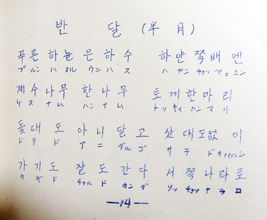 반 달 (半月)
푸른 하늘 은하수 하얀 쪽배엔
プルン ハヌル ウンハ ス ハ ヤン チョッ ペ エン
계수나무 한나무 토끼한마리
ケス ナム ハン ナム トッキ ハン マ リ
돛대도 아니 달고 삿대도없이
ト テ ド アニ ダルゴ サテド
가기도 잘도 간다 서쪽나라로
カギド チャルド カンダ ソッチョク ナラロ
—14—